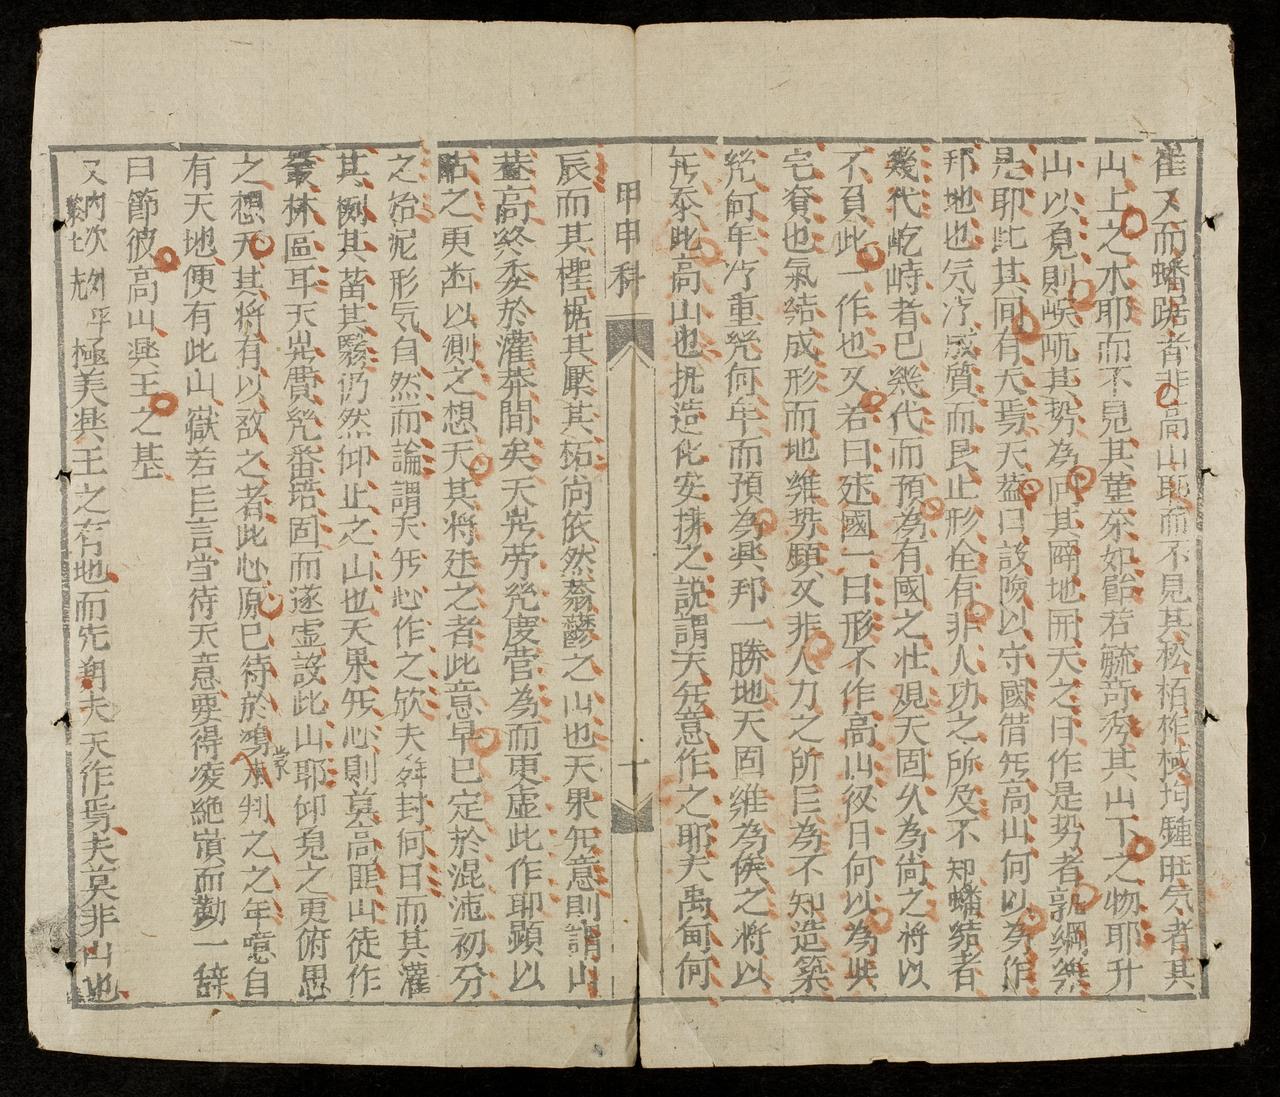 崔又而蟠踞者非高山耶而不見其松栢柞棫均鍾旺氣者其
山上之木耶而不見其堇荼如飴若毓奇秀其山下之物耶升
山以覓則峴𡵺其势為回其闢地開天之日作是势者孰綱維
是耶此其间有天焉天盖曰設險以守國借旡高山何以為作
邦地也気冷成質而艮止形全有非人功之所及不知蟠結者
幾代屹峙者已幾代而預為有國之壮観天固久為尚之将以
不負此一作也又若曰建國一日形不作高山役日何以為此
宅賚也氣結成形而地維势頋又非人力之所巨為不知造築
㡬何年冷重㡬何年而預為興邦一勝地天固維為俟之将以
旡忝此高山也扺造化安排之説謂天旡意作之耶夫禹甸何
甲申科
一
辰而其檉椐其壓其柘尚依然蓊鬱之山也天果旡意則謂山
荅高終委於灌莽間矣天㡬劳㡬慶营為而更虚此作耶顕以
帖之更畄以測之想天其将建之者此意早已定於混沌初分
之始泥形気自然而論謂天旡心作之欤夫斧封何日而其灌
其栵其菑其翳仍然仰止之山也天果旡心則墓高雖山徒作
叢林區耳天㡬費㡬畨培固而遂虚設此山耶仰覓之更俯思
之想天其将有以啟之者此心原已待於鴻蒙未判之之年噫自
有天地便有此山嶽若巨言当待天意要得凌絶嵿而勸一辞
曰節彼高山興王之基
又内次
評極美興王之有地而先朔夫天作焉夫莫非山也